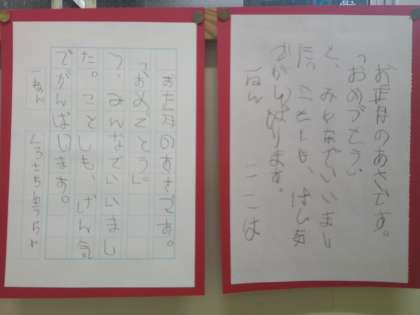 お正月のあさです。
「おめでとう。
と、みんなでいいまし
た。ことしも、げん気
でがんばります。
一ねん
お正月のあさです。
「おめでとう。」
と、みんなでいいまし
た。ことしも、げん気
でがんばります。
一ねん